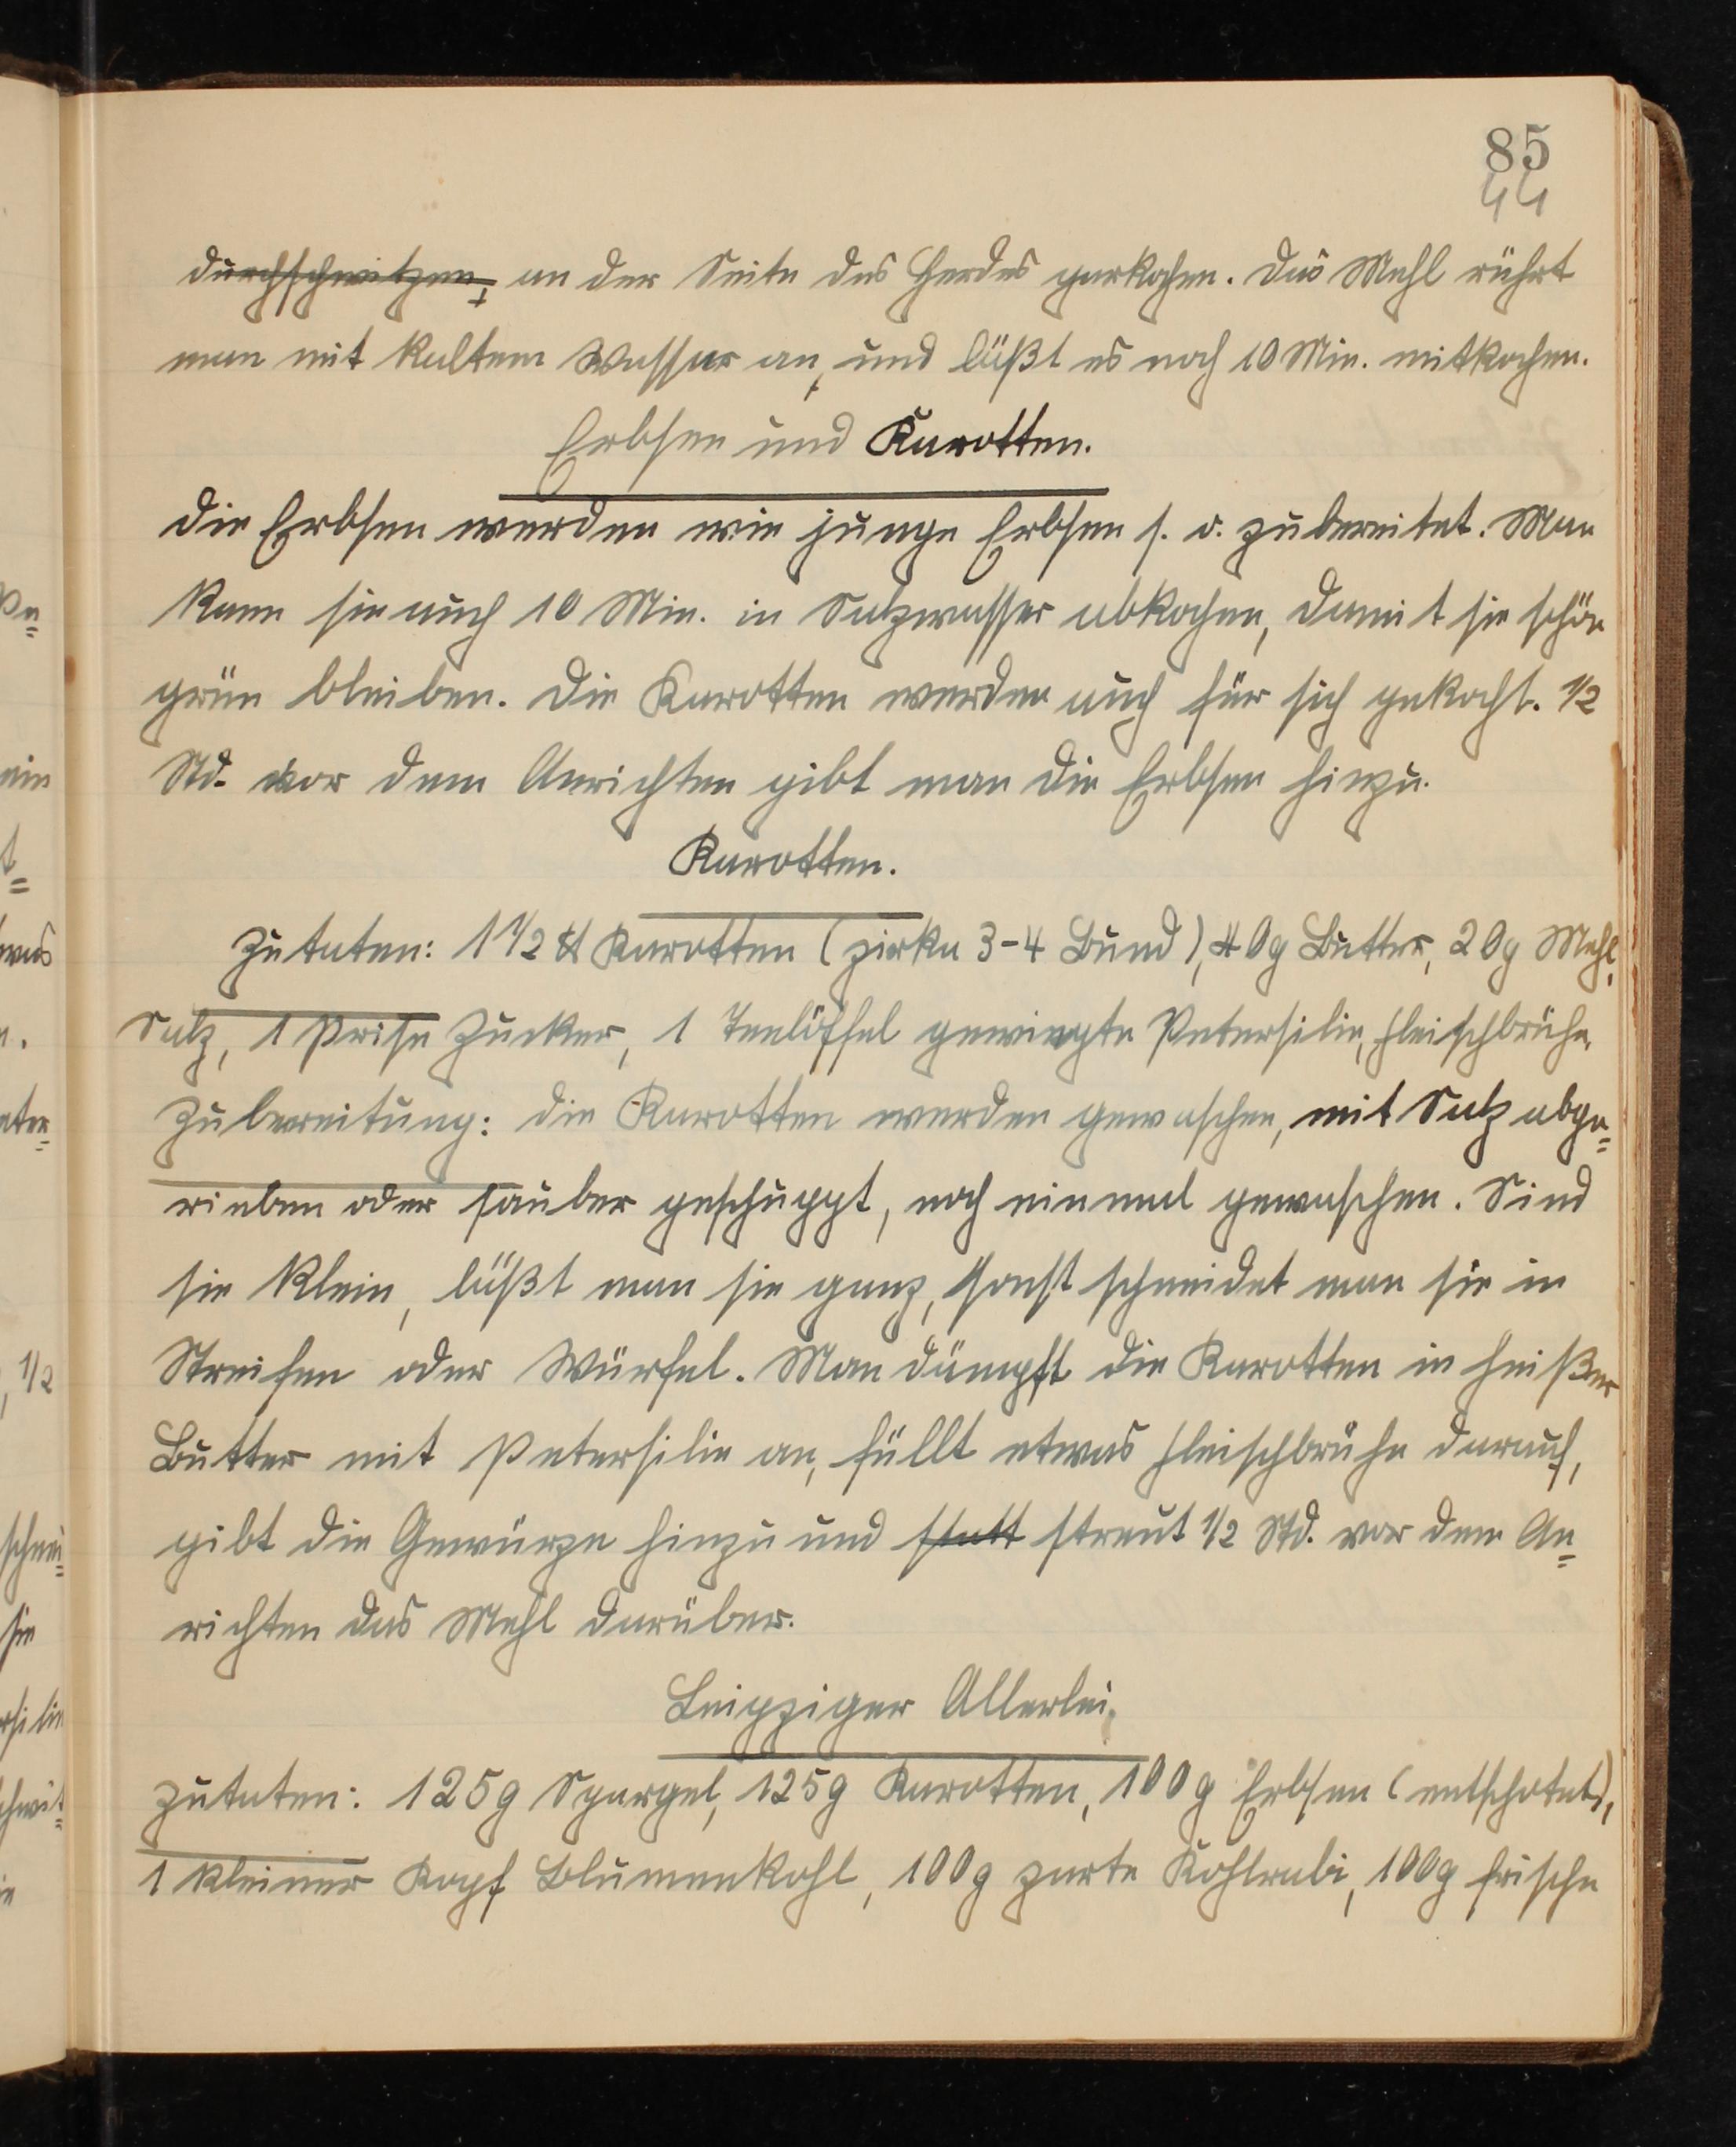 85
44
durchschwitzen, an der Seite des Herdes garkochen. Das Mehl rührt
man mit kaltem Wasser an, und läßt es noch 10 Min. mitkochen.
Erbsen und Karotten.
Die Erbsen werden wie junge Erbsen s. o. zubereitet. Man
kann sie auch 10 Min. in Salzwasser abkochen, damit sie schön
grün bleiben. Die Karotten werden auch für sich gekocht. 1/2
Std. vor dem Anrichten gibt man die Erbsen hinzu.
Karotten.
Zutaten: 1 1/2 ℔ Karotten (zirka 3-4 Bund), 40g Butter, 20g Mehl,
Salz, 1 Prise Zucker, 1 Teelöffel gewiegte Petersilie, Fleischbrühe.
Zubereitung: Die Karotten werden gewaschen, mit Salz abge=
rieben oder sauber geschuppt, noch einmal gewaschen. Sind
sie klein, läßt man sie ganz, sonst schneidet man sie in
Streifen oder Würfel. Man dämpft die Karotten in heißer
Butter mit Petersilie an, füllt etwas Fleischbrühe darauf,
gibt die Gewürze hinzu und statt streut 1/2 Std. vor dem An=
richten das Mehl darüber.
Leipziger Allerlei.
Zutaten: 125g Spargel, 125g Karotten, 100g Erbsen (entschotet),
1 kleiner Kopf Blumenkohl, 100g zarte Kohlrabi, 100g frische